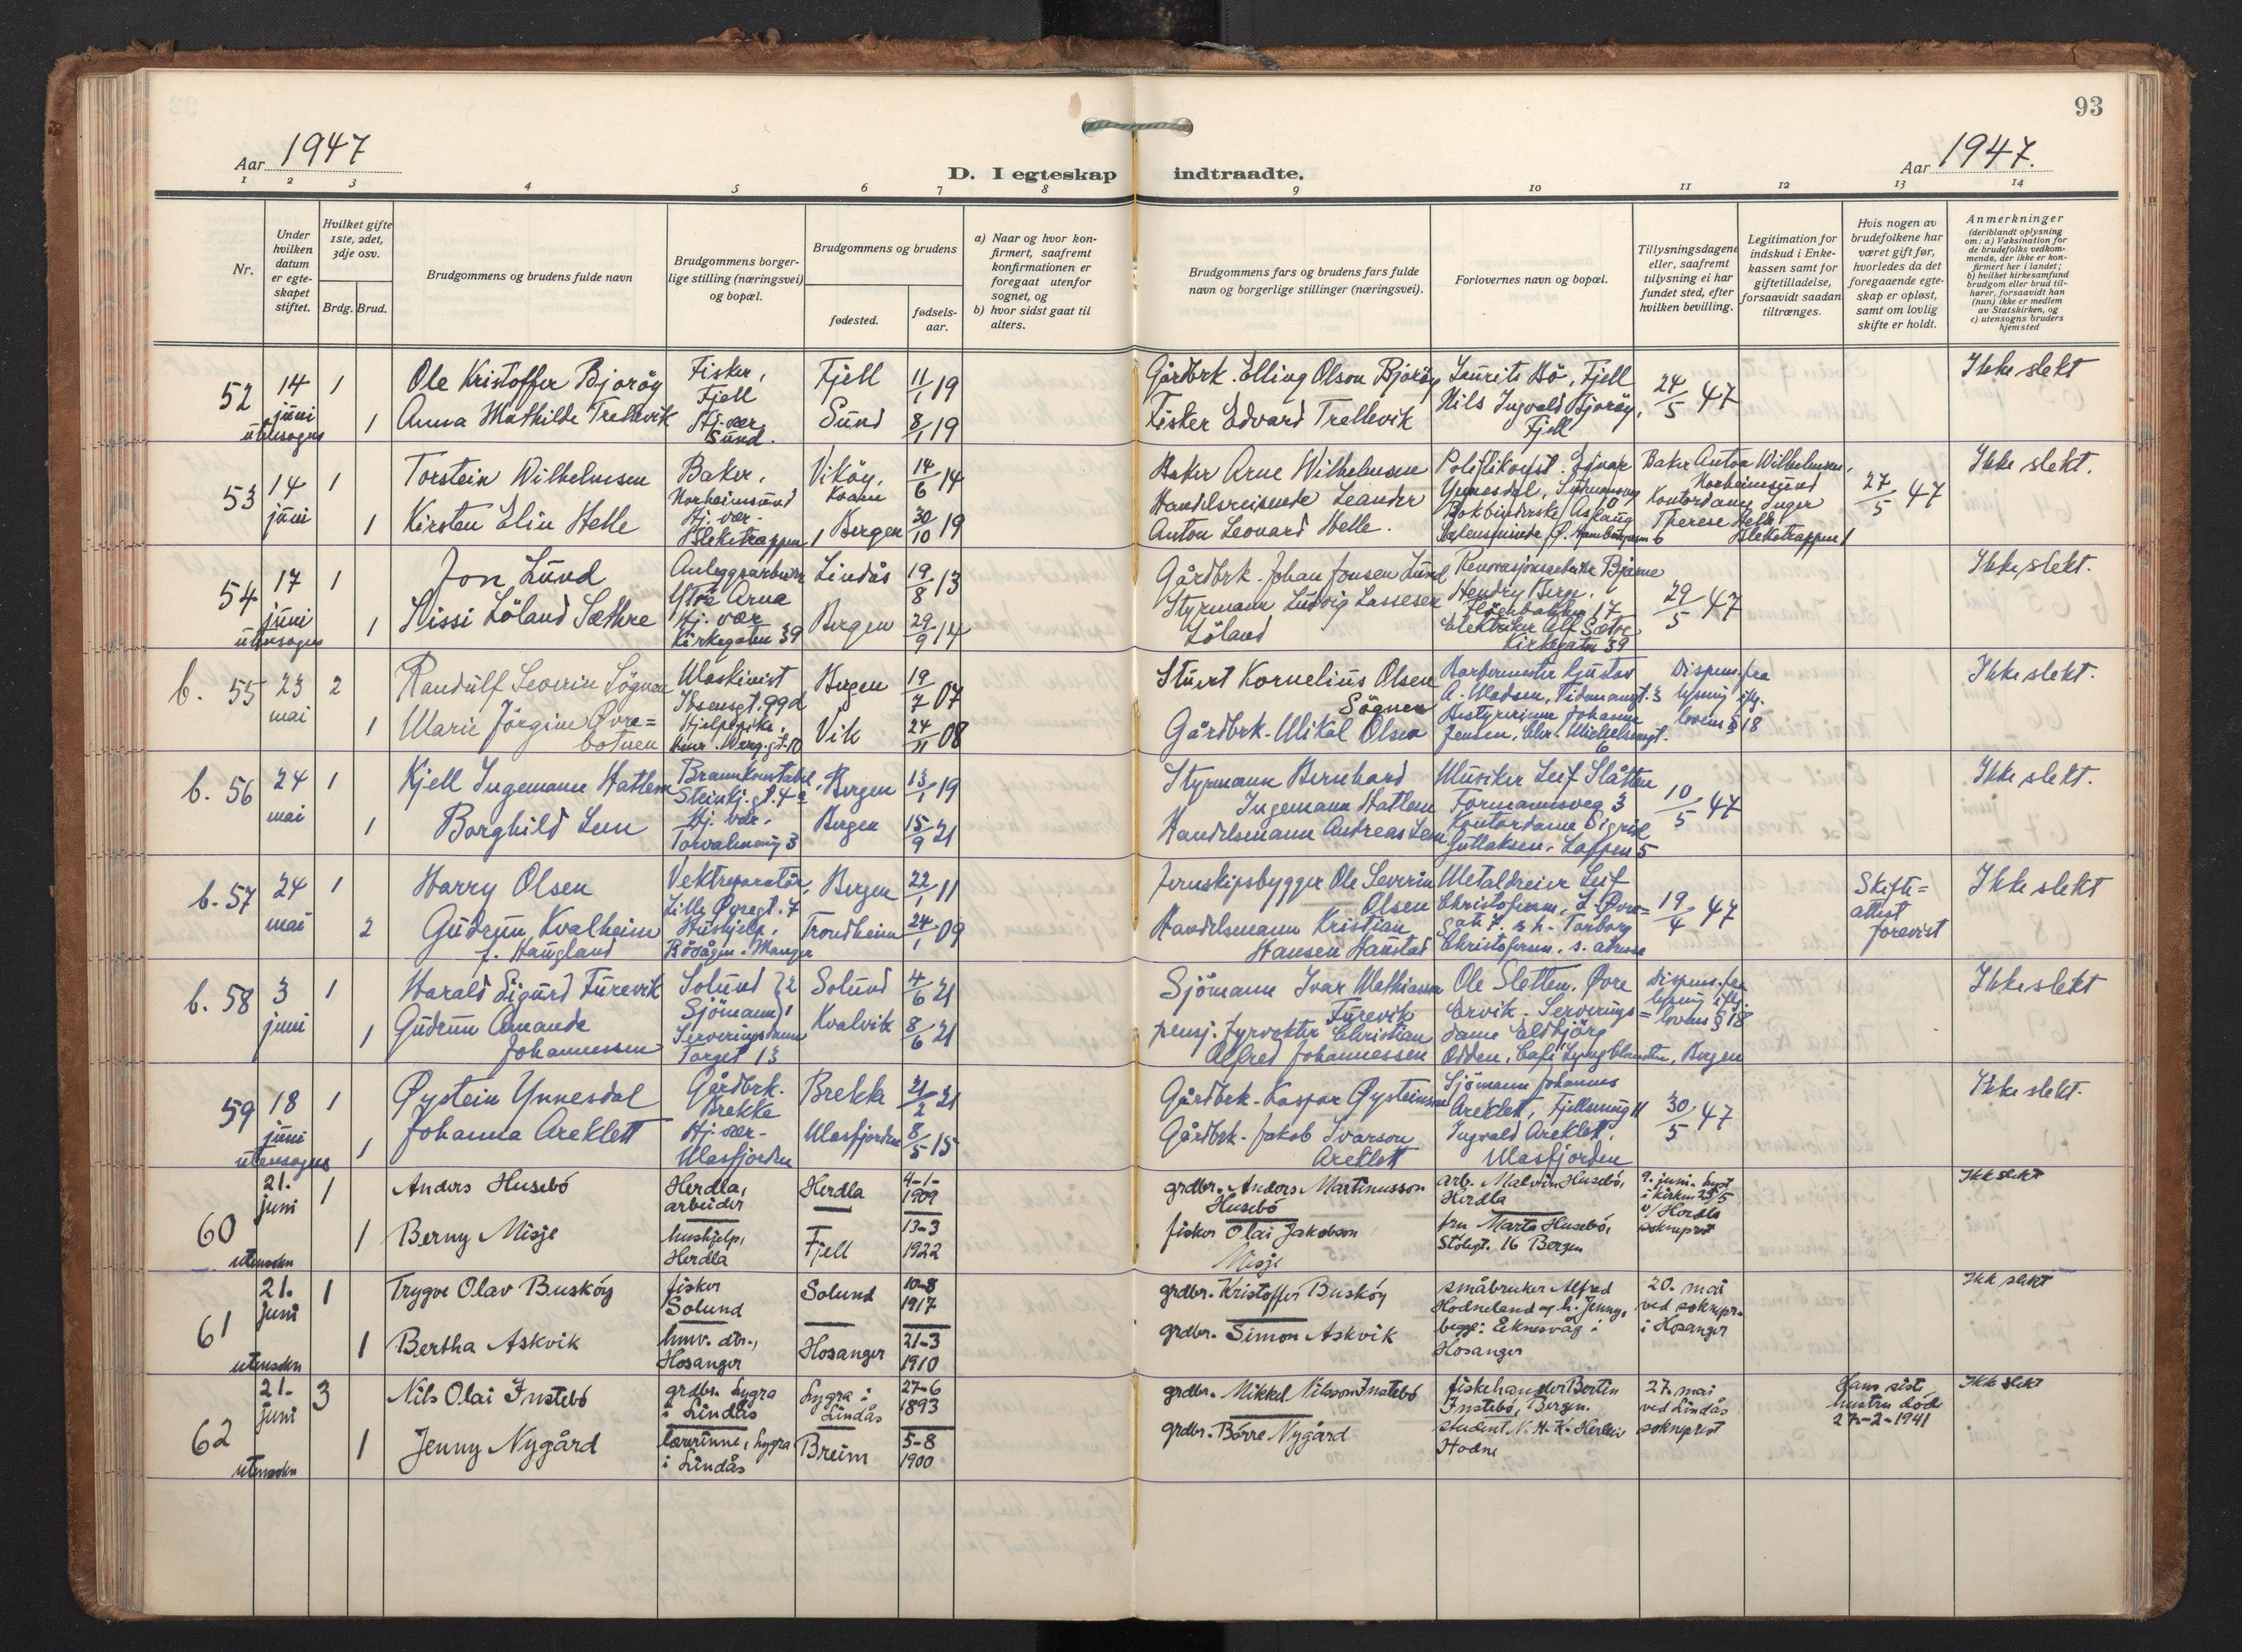 93
Aar 1947
Aar 1947.
D. I egteskap indtraadte.
1 2 3 4 5 6 7 8 9 10 11 12 13 14
Nr.
Under hvilken datum er egteskapet stiftet.
Hvilket gifte 1ste, 2det, 3dje osv.
Brdg. Brud.
Brudgommens og brudens fulde navn
Brudgommens borgerlige stilling (næringsvei) og bopæl.
Brudgommens og brudens
fødested.
fødselsaar.
a) Naar og hvor konfirmert, saafremt konfirmationen er foregaat utenfor sognet, og
b) hvor sidst gaat til alters.
Brudgommens fars og brudens fars fulde navn og borgerlige stillinger (næringsvei).
Forlovernes navn og bopæl.
Tillysningsdagene eller, saafremt tillysning ei har fundet sted, efter hvilken bevilling.
Legitimation for indskud i Enkekassen samt for giftetilladelse, forsaavidt saadan tiltrænges.
Hvis nogen av brudefolkene har været gift før, hvorledes da det foregaaende egteskap er opløst, samt om lovlig skifte er holdt.
Anmerkninger
(deriblandt oplysning om: a) Vaksination for de brudefolks vedkommende, der ikke er konfirmert her i landet; b) hvilket kirkesamfund brudgom eller brud tilhører, forsaavidt han (hun) ikke er medlem av Statskirken, og c) utensogns bruders hjemsted
52 14 juni utensogns 1 Ole Kristoffer Bjorøy Fisker, Fjell Fjell 11/1 19 Gårdbrk. Elling Olson Bjorøy Laurits Bö, Fjell 24/5 47 Ikke slekt
1 Anna Mathilde Trellevik Hj.vær. Sund. Sund 8/1 19 Fisker Edvard Trellevik Nils Ingvald Bjorøy, Fjell
53 14 juni 1 Torstein Wilhelmsen Baker, Norheimsund Viköy, Kvam 14/6 14 Baker Arne Wilhelmsen Politikonst. Ynnesdal, Baker Anton Wilhelmsen, Norheimsund 27/5 47 Ikke slekt.
1 Kirsten Elin Helle Hj. vær. Blekitrappen 1 Bergen 30/10 19 Handelsreisende Leander Anton Leonard Helle. Bokbinderske Aslaug Kontordame Inger Therese Helle Blekitrappen 1
54 17 juni utensogns 1 Jon Lund Anleggsarbeider Ytre Arna Lindås 19/8 13 Gårdbrk. Johan Jonsen Lund Renovasjonsarbeider Bjarne Hendry Berge, 17 29/5 47 Ikke slekt.
1 Sissi Löland Sæthre Hj. vær Kirkegaten 39 Bergen 29/9 14 Styrmann Ludvig Lassesen Löland Elektriker Alf Sætre Kirkegaten 39
b. 55 23 mai 2 Randulf Severin Sögnen Maskinist Ibsensgt. 99d Bergen 19/7 07 Stuert Kornelius Olsen Sögnen Barbermester Gustav A. Madsen, Videmansgt. 3 Dispens. fra lysning iflg. lovens § 18 Ikke slekt.
1 Marie Jörgine Övrebotnen Hjelpepike, Henr. Werg.gt. 10 Vik 24/11 08 Gårdbrk. Mikal Olsen Bestyrerinne Johanne Jensen, Chr. Michelsensgt. 6
b. 56 24 mai 1 Kjell Ingemann Hatlem Brannkonstabel, Steinkj.gt. 4a Bergen 13/1 19 Styrmann Bernhard Ingemann Hatlem Musiker Leif Slåtten Formannsveg 3 10/5 47 Ikke slekt.
1 Borghild Lem Hj. vær. Torvalmenning 3 Bergen 15/9 21 Handelsmann Andreas Lem Kontordame Sigrid Gutlaksen, Lappen 5
b. 57 24 mai 1 Harry Olsen Vektreparatör, Lille Øvregt. 7 Bergen 22/1 11 Jernskipsbygger Ole Severin Olsen Metaldreier Leif Christofersen, L. Øvregate 7. 19/4 47 Skifteattest forevist Ikke slekt
2 Gudrun Kvalheim f. Haugland Hushjelp, Bövågen. Manger Trondheim 24/1 09 Handelsmann Kristian Hansen Haustad Torborg Christofersen, s. adresse
b. 58 3 juni 1 Harald Sigurd Furevik Solund }2 Sjömann }1 Solund 4/6 21 Sjömann Ivar Mathiassen Furevik Ole Sletten, Øvre Ervik. Dispens. fra lysning iflg. lovens § 18 Ikke slekt
1 Gudrun Amanda Johannessen Serveringsdame Torget 13 Kvalvik 8/6 21 pensj. fyrvokter Christian Alfred Johannessen Serveringsdame Eldbjörg Odden, Café Lyngblomsten, Bergen
59 18 juni utensogns 1 Øystein Ynnesdal Gårdbrk. Brekke Brekke 21/2 21 Gårdbrk. Kaspar Øysteinsen Sjömann Johannes Areklett, Fjellsmug 11 30/5 47 Ikke slekt.
1 Johanna Areklett Hj. vær. Masfjorden Masfjorden 8/5 15 Gårdbrk. Jakob Ivarson Areklett Ingvald Areklett, Masfjorden
60 21. juni utensokn 1 Anders Husebö Herdla, arbeider Herdla 4-1-1909 grdbr. Anders Martinusson Husebö arb. Malvin Husebö, Herdla 9. juni. lyst i kirken 25/5 v/ Herdla sokneprest Ikke slekt
1 Berny Misje hushjelp, Herdla Fjell 13-3 1922 fisker Olai Jakobson Misje fru Marta Husebö, Stölegt. 16 Bergen
61 21. juni utensokn 1 Trygve Olav Busköy fisker Solund Solund 10-8 1917 grdbr. Kristoffer Busköy småbruker Alfred Hodneland og h. Jenny, 20. mai ved soknepr. i Hosanger Ikke slekt
1 Bertha Askvik hmv. dtr., Hosanger Hosanger 21-3 1910 grdbr. Simon Askvik begge: Eknesvåg i Hosanger
62 21. juni utensokn 3 Nils Olai Instebö grdbr. Lygra i Lindås Lygra i Lindås 27-6 1893 grdbr. Mikkel Nilsson Instebö fiskehandler Bertin Instebö, Bergen. 27. mai ved Lindås sokneprest Hans sist hustru död 27-2-1941 Ikke slekt
1 Jenny Nygård lærerinne, Lygra i Lindås Breim 5-8 1900 grdbr. Börre Nygård student N. H. K. Hodne